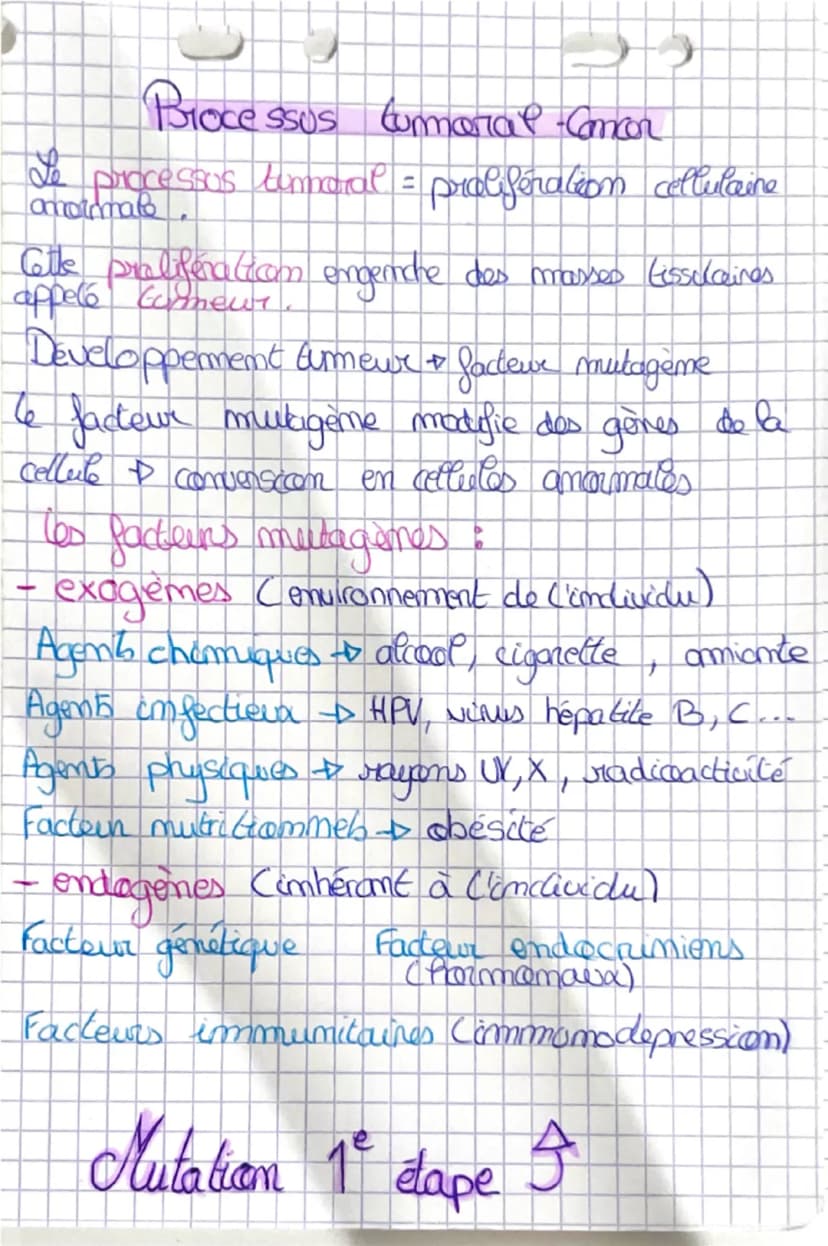 Processus tumoral - Cancer
Le processus tumoral = prolifération cellulaire
anormale.
Cette prolifération engendre des masses tissulaires
appelé tumeur.
Développement tumeur → facteur mutagène
le facteur mutagène modifie des gènes de la
cellule → conversion en cellules anormales
Les facteurs mutagènes :
- exogèmes (environnement de l'individu)
Agents chimiques → alcool, cigarette, amiante
Agents infectieux → HPV, virus hépatite B, C...
Agents physiques → rayons UV, X, radioacticité
Facteur nutritionnels → obésité
- endogènes (inhérant à l'individu)
Facteur génétique Facteur endocriniens
(hormonaux)
Facteurs immunitaires (immonodepression)
Mutation 1e étape ⤴